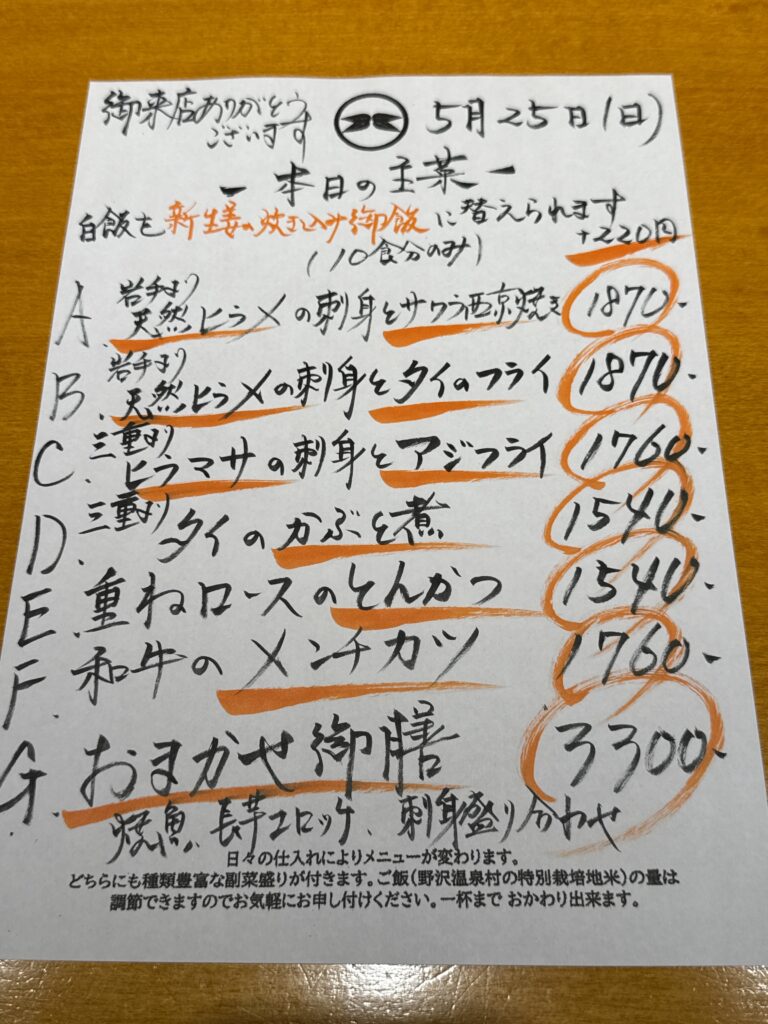 御来店ありがとう
ございます
5月25日(日)
ー本日の主菜ー
白飯を新生姜の炊き込み御飯に替えられます
+220円
(10食分のみ)
岩手より
A. 天然ヒラメの刺身とサワラ西京焼き 1870-
岩手より
B. 天然ヒラメの刺身とタイのフライ 1870-
三重より
C. ヒラマサの刺身とアジフライ 1760-
三重より
D. タイのかぶと煮 1540-
E. 重ねロースのとんかつ 1540-
F. 和牛のメンチカツ 1760-
G. おまかせ御膳 3300-
焼魚、長芋コロッケ、刺身盛り合わせ
日々の仕入れによりメニューが変わります。
どちらにも種類豊富な副菜盛りが付きます。ご飯(野沢温泉村の特別栽培地米)の量は
調節できますのでお気軽にお申し付けください。一杯まで おかわり出来ます。